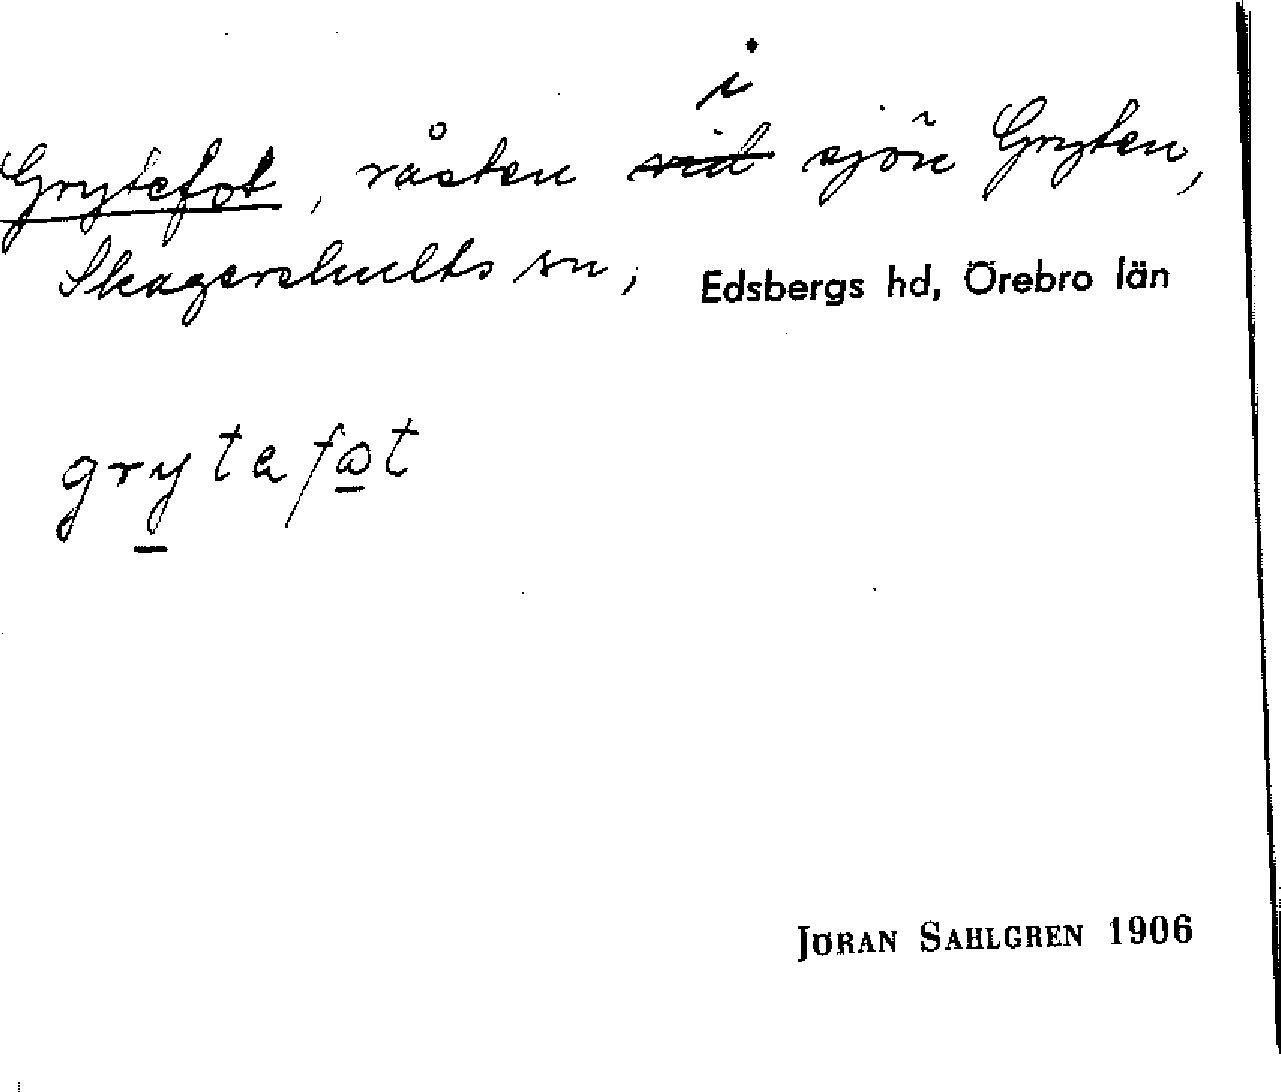 i
Grytefot, råsten vid sjön Gryten,
Skagershults sn, Edsbergs hd, Örebro län
grytafωt
JÖRAN SAHLGREN 1906